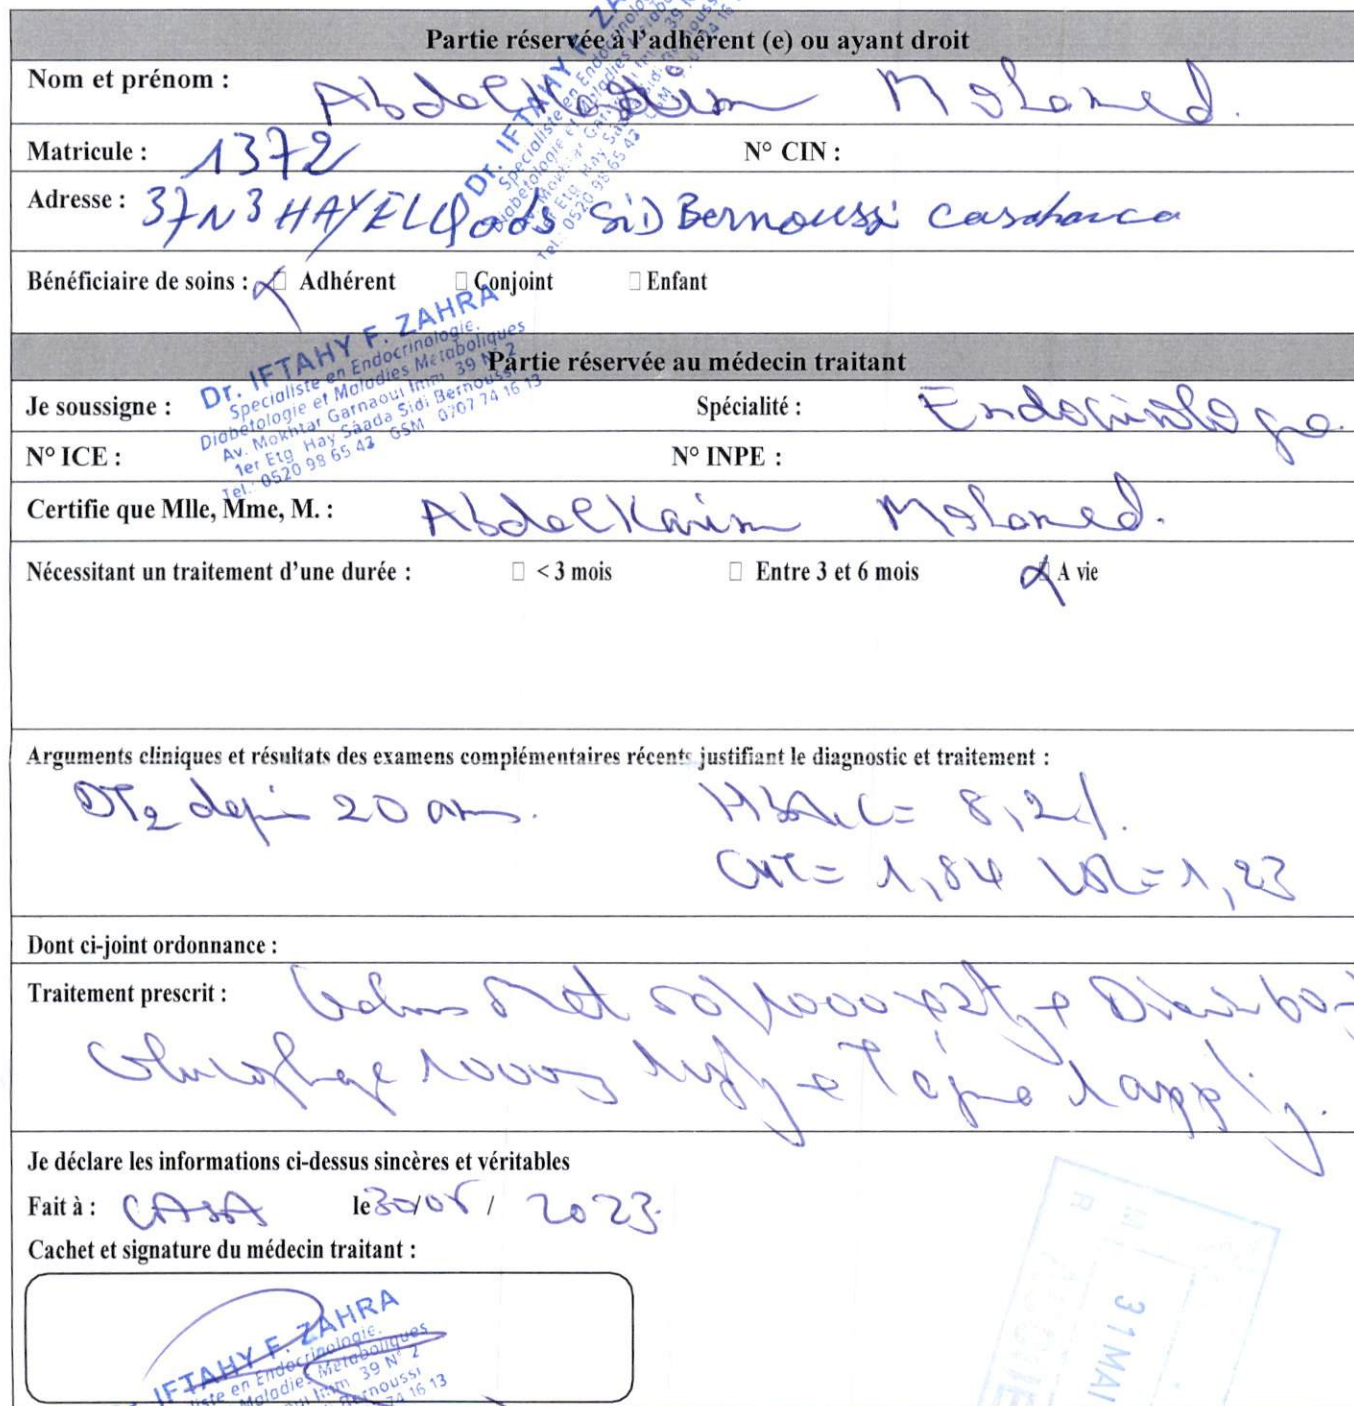 Partie réservée à l'adhérent (e) ou ayant droit
Nom et prénom : Abdelkarim Mohamed.
Matricule : 1372 N° CIN :
Adresse : 37 N 3 HAY EL Qods SiD Bernoussi casabanca
Bénéficiaire de soins : Adhérent Conjoint Enfant
Dr. IFTAHY F. ZAHRA
Specialiste en Endocrinologie,
Diabétologie et Maladies Metaboliques
Av. Mokhtar Garnaoui Imm 39 N° 2
1er Etg Hay Saada Sidi Bernoussi
Tel.: 0520 98 65 43 GSM 0707 74 16 13
Partie réservée au médecin traitant
Je soussigne : Spécialité : Endocrinologie
N° ICE : N° INPE :
Certifie que Mlle, Mme, M. : Abdelkarim Mohamed.
Nécessitant un traitement d'une durée : < 3 mois Entre 3 et 6 mois A vie
Arguments cliniques et résultats des examens complémentaires récents justifiant le diagnostic et traitement :
DT2 depuis 20 ans. HbA1c = 8,2%.
= 1,84 = 1,23
Dont ci-joint ordonnance :
Traitement prescrit : Met 50/1000
Glucophage 1000 1 app/j.
Je déclare les informations ci-dessus sincères et véritables
Fait à : CASA le 30/05 / 2023.
Cachet et signature du médecin traitant :
IFTAHY F. ZAHRA
31 MAI